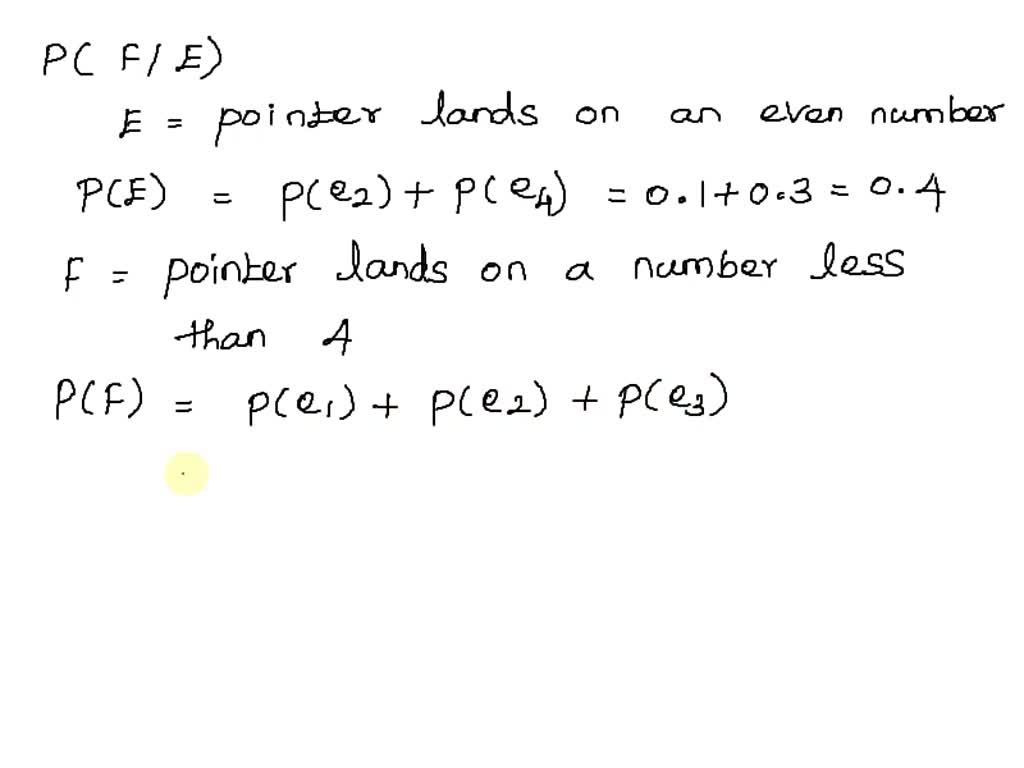 P( F/E)
E = pointer lands on an even number
P(E) = P(e2) + P(e4) = 0.1+0.3 = 0.4
F = pointer lands on a number less
than 4
P(F) = P(e1) + P(e2) + P(e3)